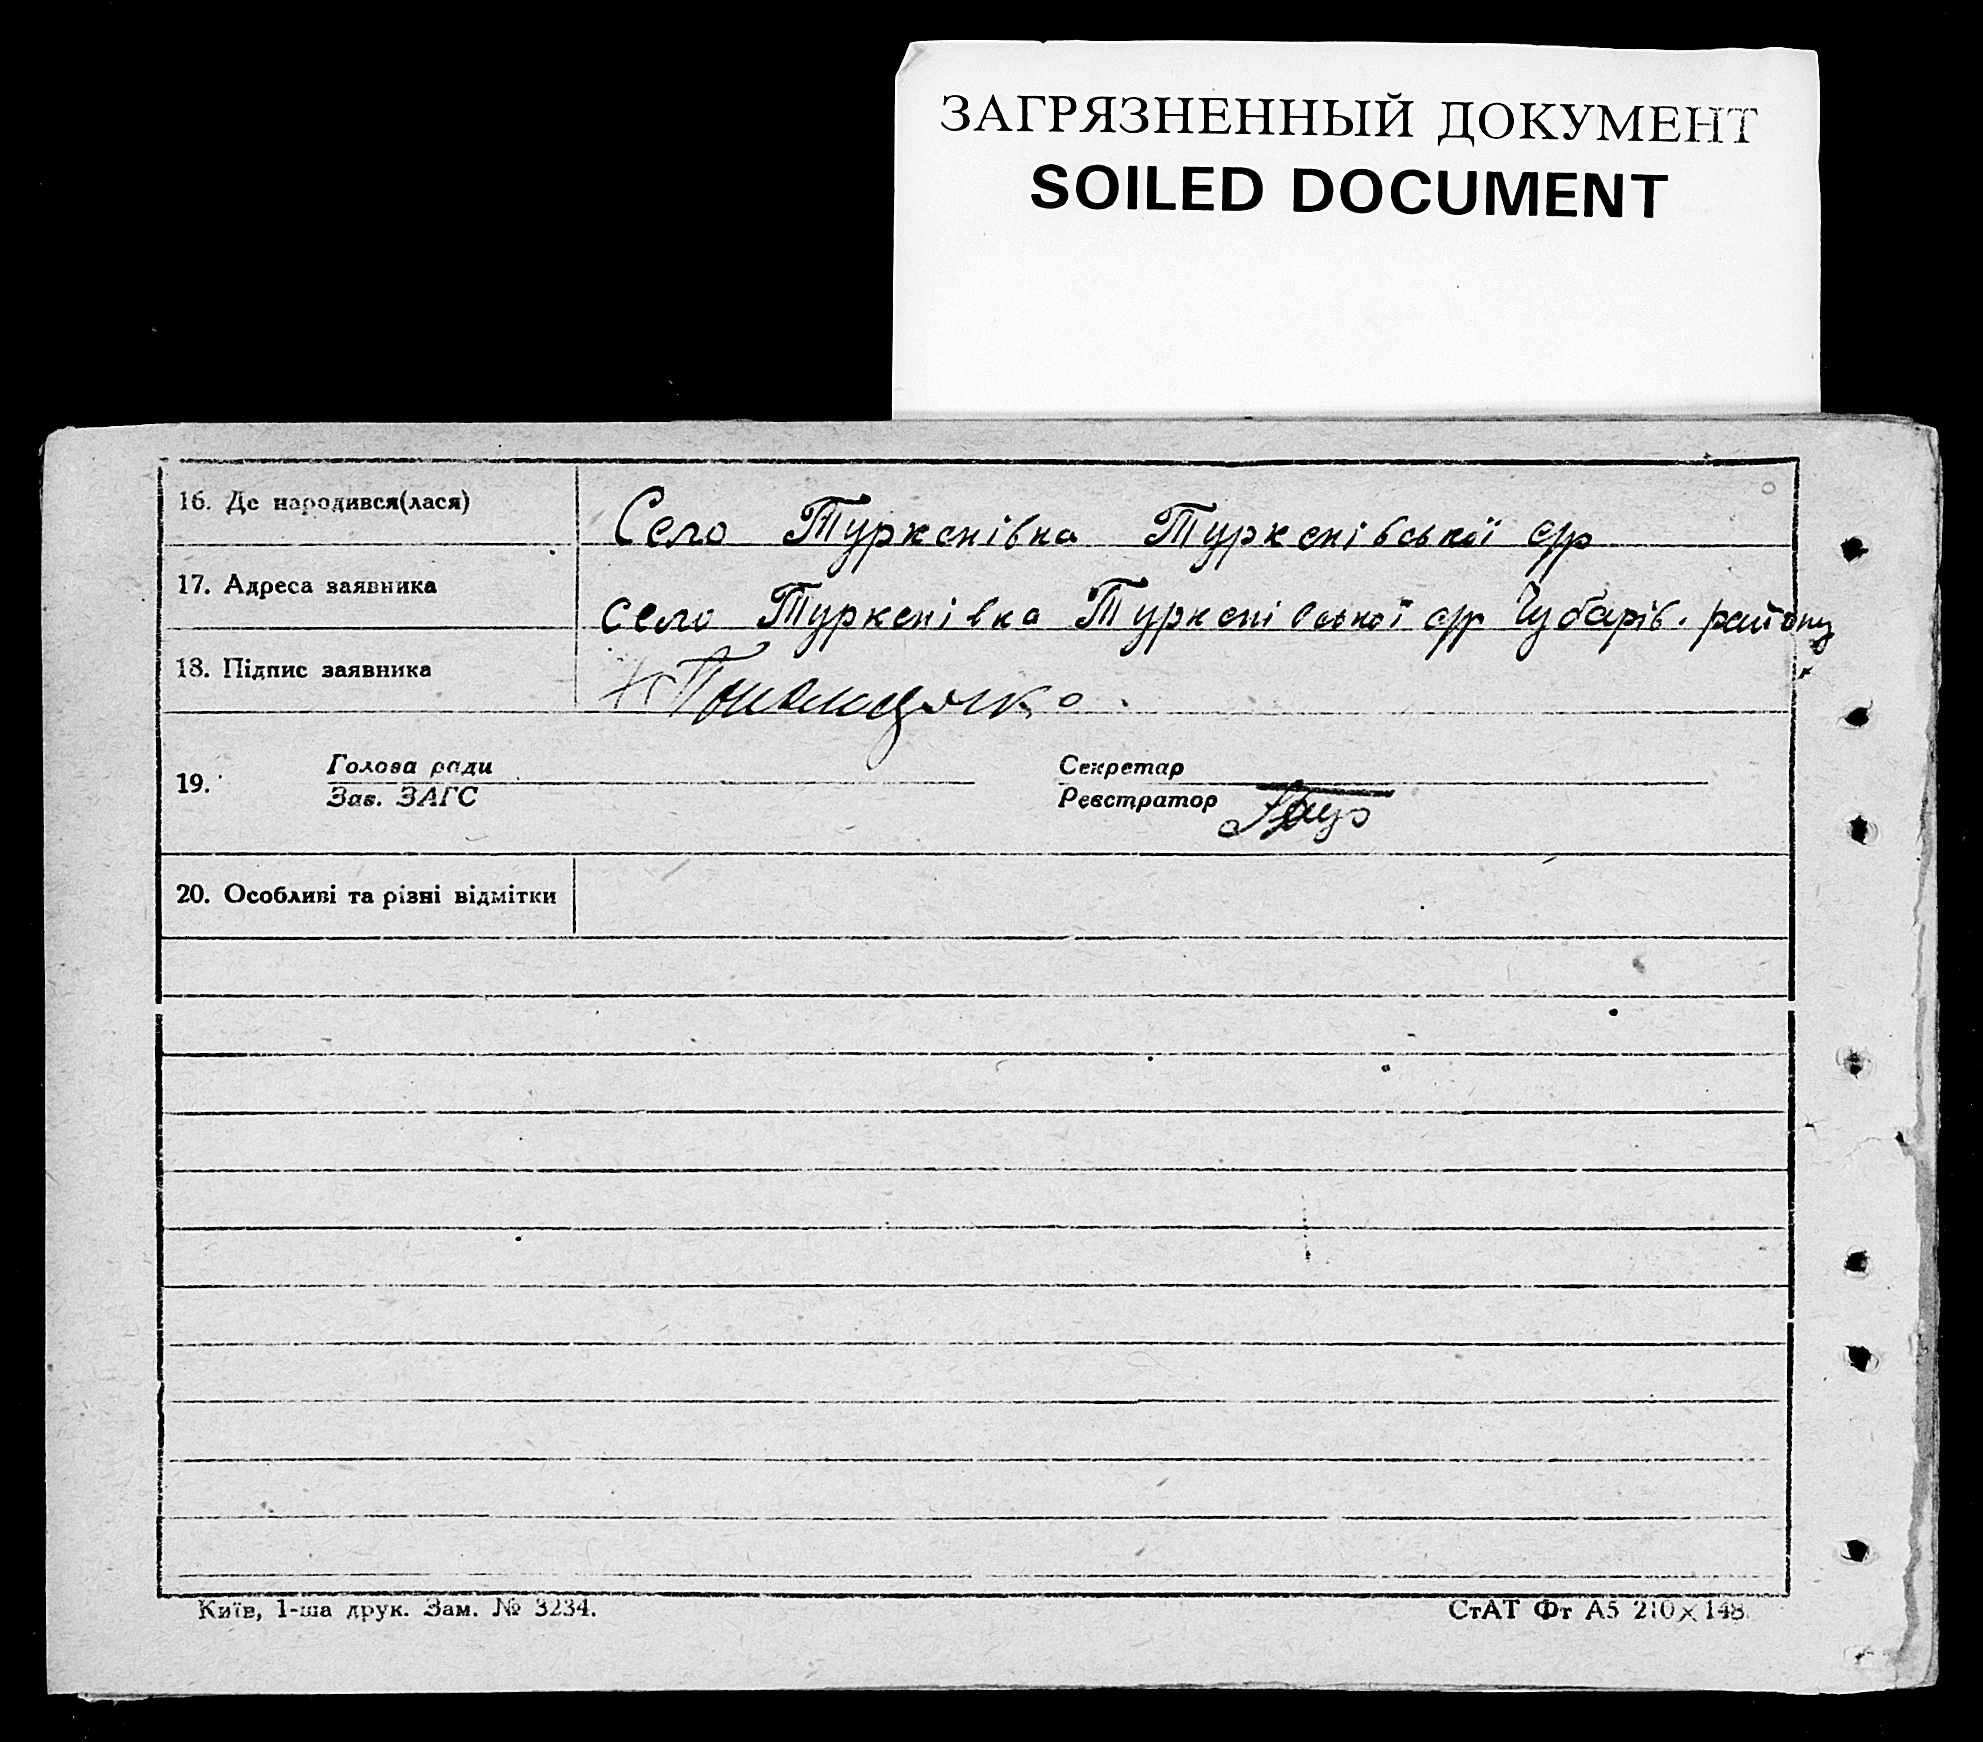 ЗАГРЯЗНЕННЫЙ ДОКУМЕНТ
SOILED DOCUMENT
16. Де народився(лася) Село Туркенівка Туркенівської с/р
17. Адреса заявника село Туркенівка Туркенівської с/р Чубарів. району
18. Підпис заявника
19. Голова ради Секретар
Зав. ЗАГС Реєстратор
20. Особливі та різні відмітки
Київ, 1-ша друк. Зам. № 3234. СтАТ Фт А5 210×148